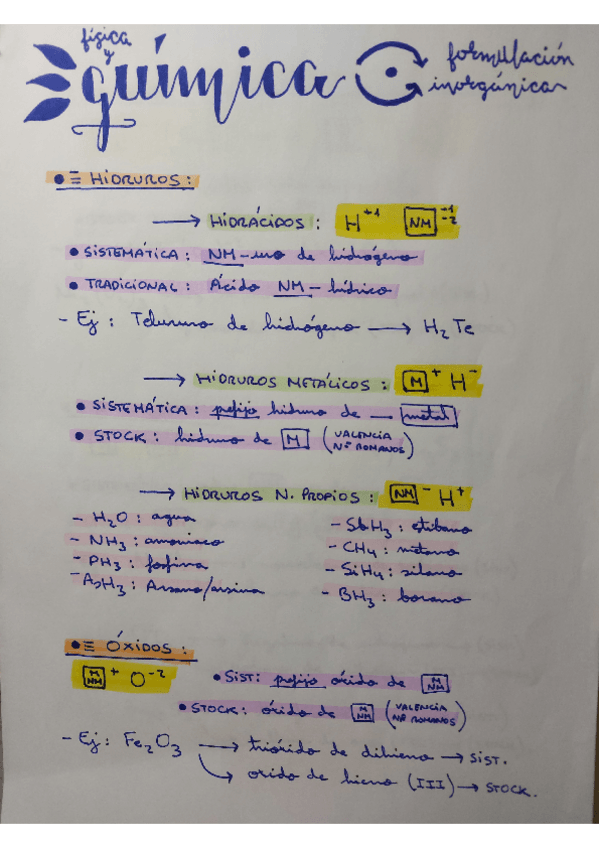 física
y
química
formulación
inorgánica
• ≡ HIDRUROS:
→ HIDRÁCIDOS: H⁺¹ NM⁻¹₋₂
• SISTEMÁTICA: NM-uro de hidrógeno
• TRADICIONAL: Ácido NM-hídrico
- Ej: Telururo de hidrógeno → H₂Te
→ HIDRUROS METÁLICOS: M⁺ H⁻
• SISTEMÁTICA: prefijo hidruro de — metal
• STOCK: hidruro de M (VALENCIA Nº ROMANOS)
→ HIDRUROS N. PROPIOS: NM⁻ H⁺
- H₂O: agua
- NH₃: amoniaco
- PH₃: fosfina
- AsH₃: Arsano/arsina
- SbH₃: estibano
- CH₄: metano
- SiH₄: silano
- BH₃: borano
• ≡ ÓXIDOS:
M NM⁺ O⁻²
• SIST: prefijo óxido de M NM
• STOCK: óxido de M NM (VALENCIA Nº ROMANOS)
- Ej: Fe₂O₃ → trióxido de dihierro → SIST.
→ oxido de hierro (III) → STOCK.